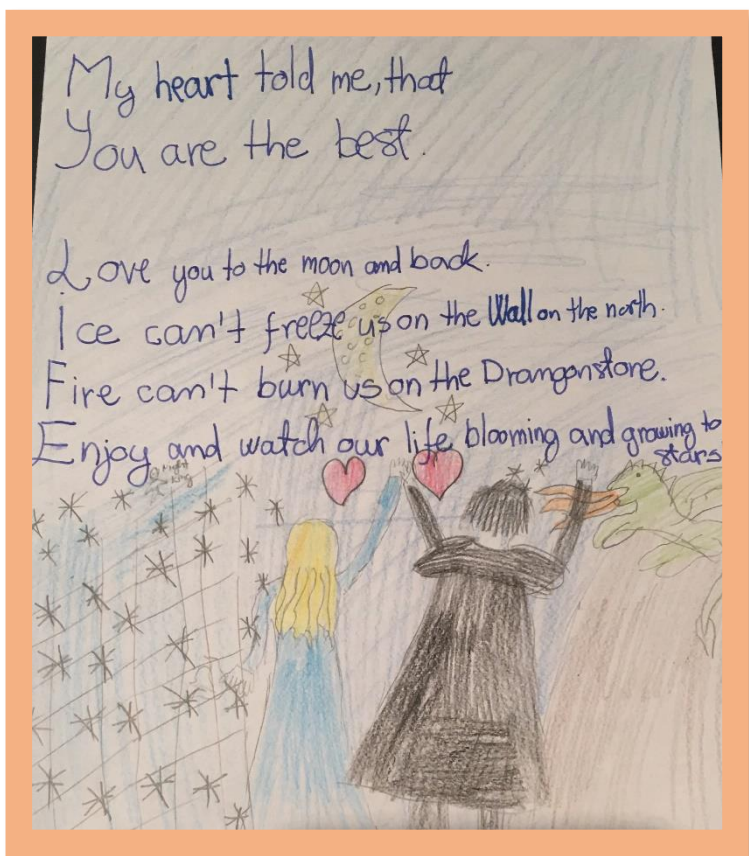 My heart told me, that
You are the best.
Love you to the moon and back.
Ice can't freeze us on the Wall on the north.
Fire can't burn us on the Drangonstore.
Enjoy and watch our life blooming and growing to
stars
Night
King